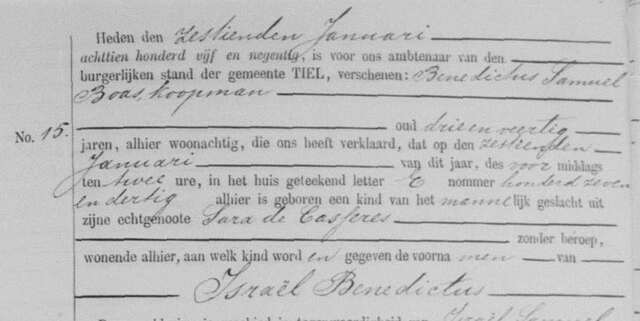 Heden den zestienden Januari
achttien honderd vijf en negentig, is voor ons ambtenaar van den
burgerlijken stand der gemeente TIEL, verschenen: Benedictus Samuel
Boas, koopman
No. 15.
oud drieenveertig
jaren, alhier woonachtig, die ons heeft verklaard, dat op den zestienden
Januari van dit jaar, des voor middags
ten twee ure, in het huis geteekend letter E nommer honderd zeven
en dertig alhier is geboren een kind van het mannelijk geslacht uit
zijne echtgenoote Sara de Casseres
zonder beroep,
wonende alhier, aan welk kind word en gegeven de voorna men van
Israël Benedictus